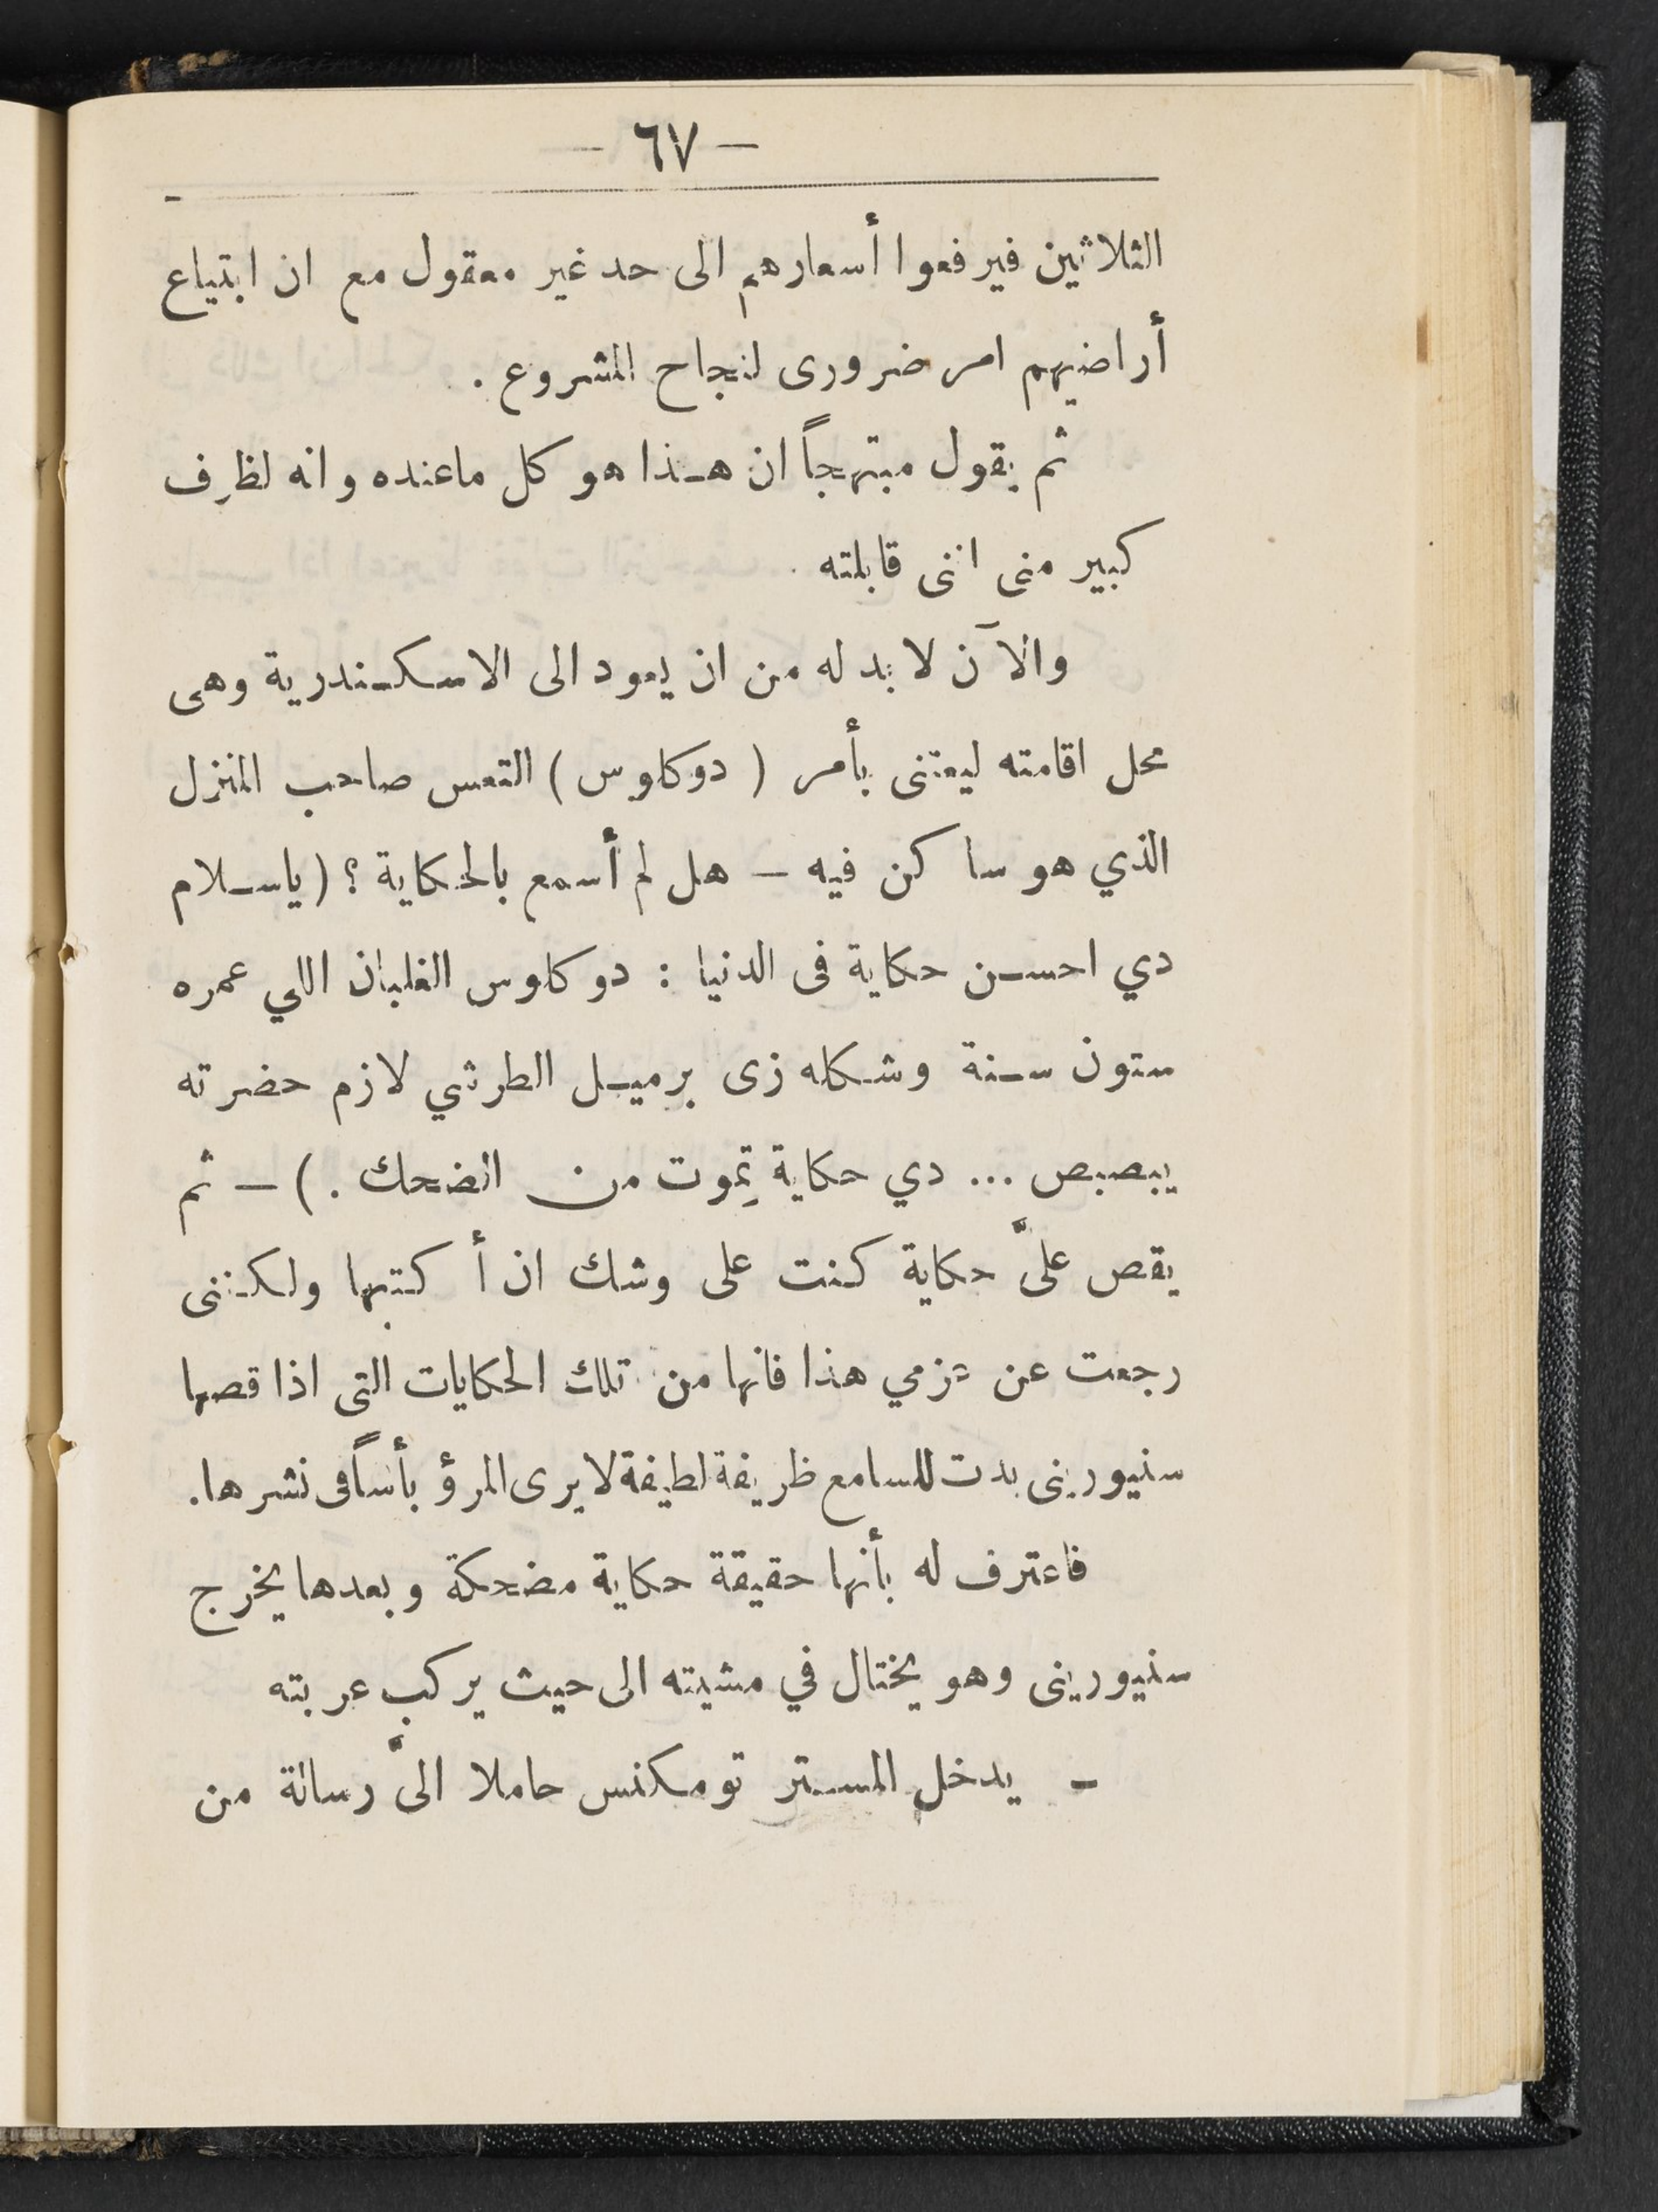 — ٦٧ —
الثلاثين فيرفعوا أسعارهم الى حد غير معقول مع ان ابتياع
أراضيهم امر ضرورى لنجاح المشروع .
ثم يقول مبتهجاً ان هـذا هو كل ماعنده وانه لظرف
كبير منى اننى قابلته .
والآن لا بد له من ان يعود الى الاسكـندرية وهى
محل اقامته ليعتنى بأمر ( دوكاوس ) التعس صاحب المنزل
الذي هو ساكن فيه — هل لم أسمع بالحكاية ؟ ( ياسـلام
دي احسـن حكاية فى الدنيا : دوكاوس الغلبان اللي عمره
ستون سـنة وشكله زى برميـل الطرشي لازم حضرته
يبصبص ... دي حكاية تِموت من الضحك . ) — ثم
يقص علىَّ حكاية كنت على وشك ان أكتبها ولكننى
رجعت عن عزمي هذا فانها من تلك الحكايات التى اذا قصها
سنيورينى بدت للسامع ظريفة لطيفة لا يرى المرؤ بأساً فى نشرها .
فاعترف له بأنها حقيقة حكاية مضحكة وبعدها يخرج
سنيورينى وهو يختال في مشيته الى حيث يركب عربته
— يدخل المسـتر تومكنس حاملا الىَّ رسالة من